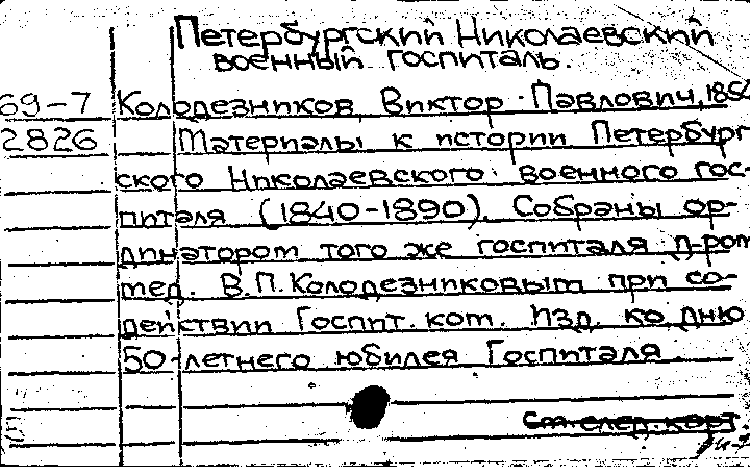 Петербургский Николаевский
военный госпиталь.
69-7 Колодезников, Виктор Павлович,
2826 Материалы к истории Петербург
ского Николаевского военного гос-
питаля (1840-1890). Собраны ор-
динатором того же госпиталя д-ром
мед. В.П. Колодезниковым при со-
действии Госпит. ком. Изд. ко дню
50-летнего юбилея Госпиталя
См. след. карт.